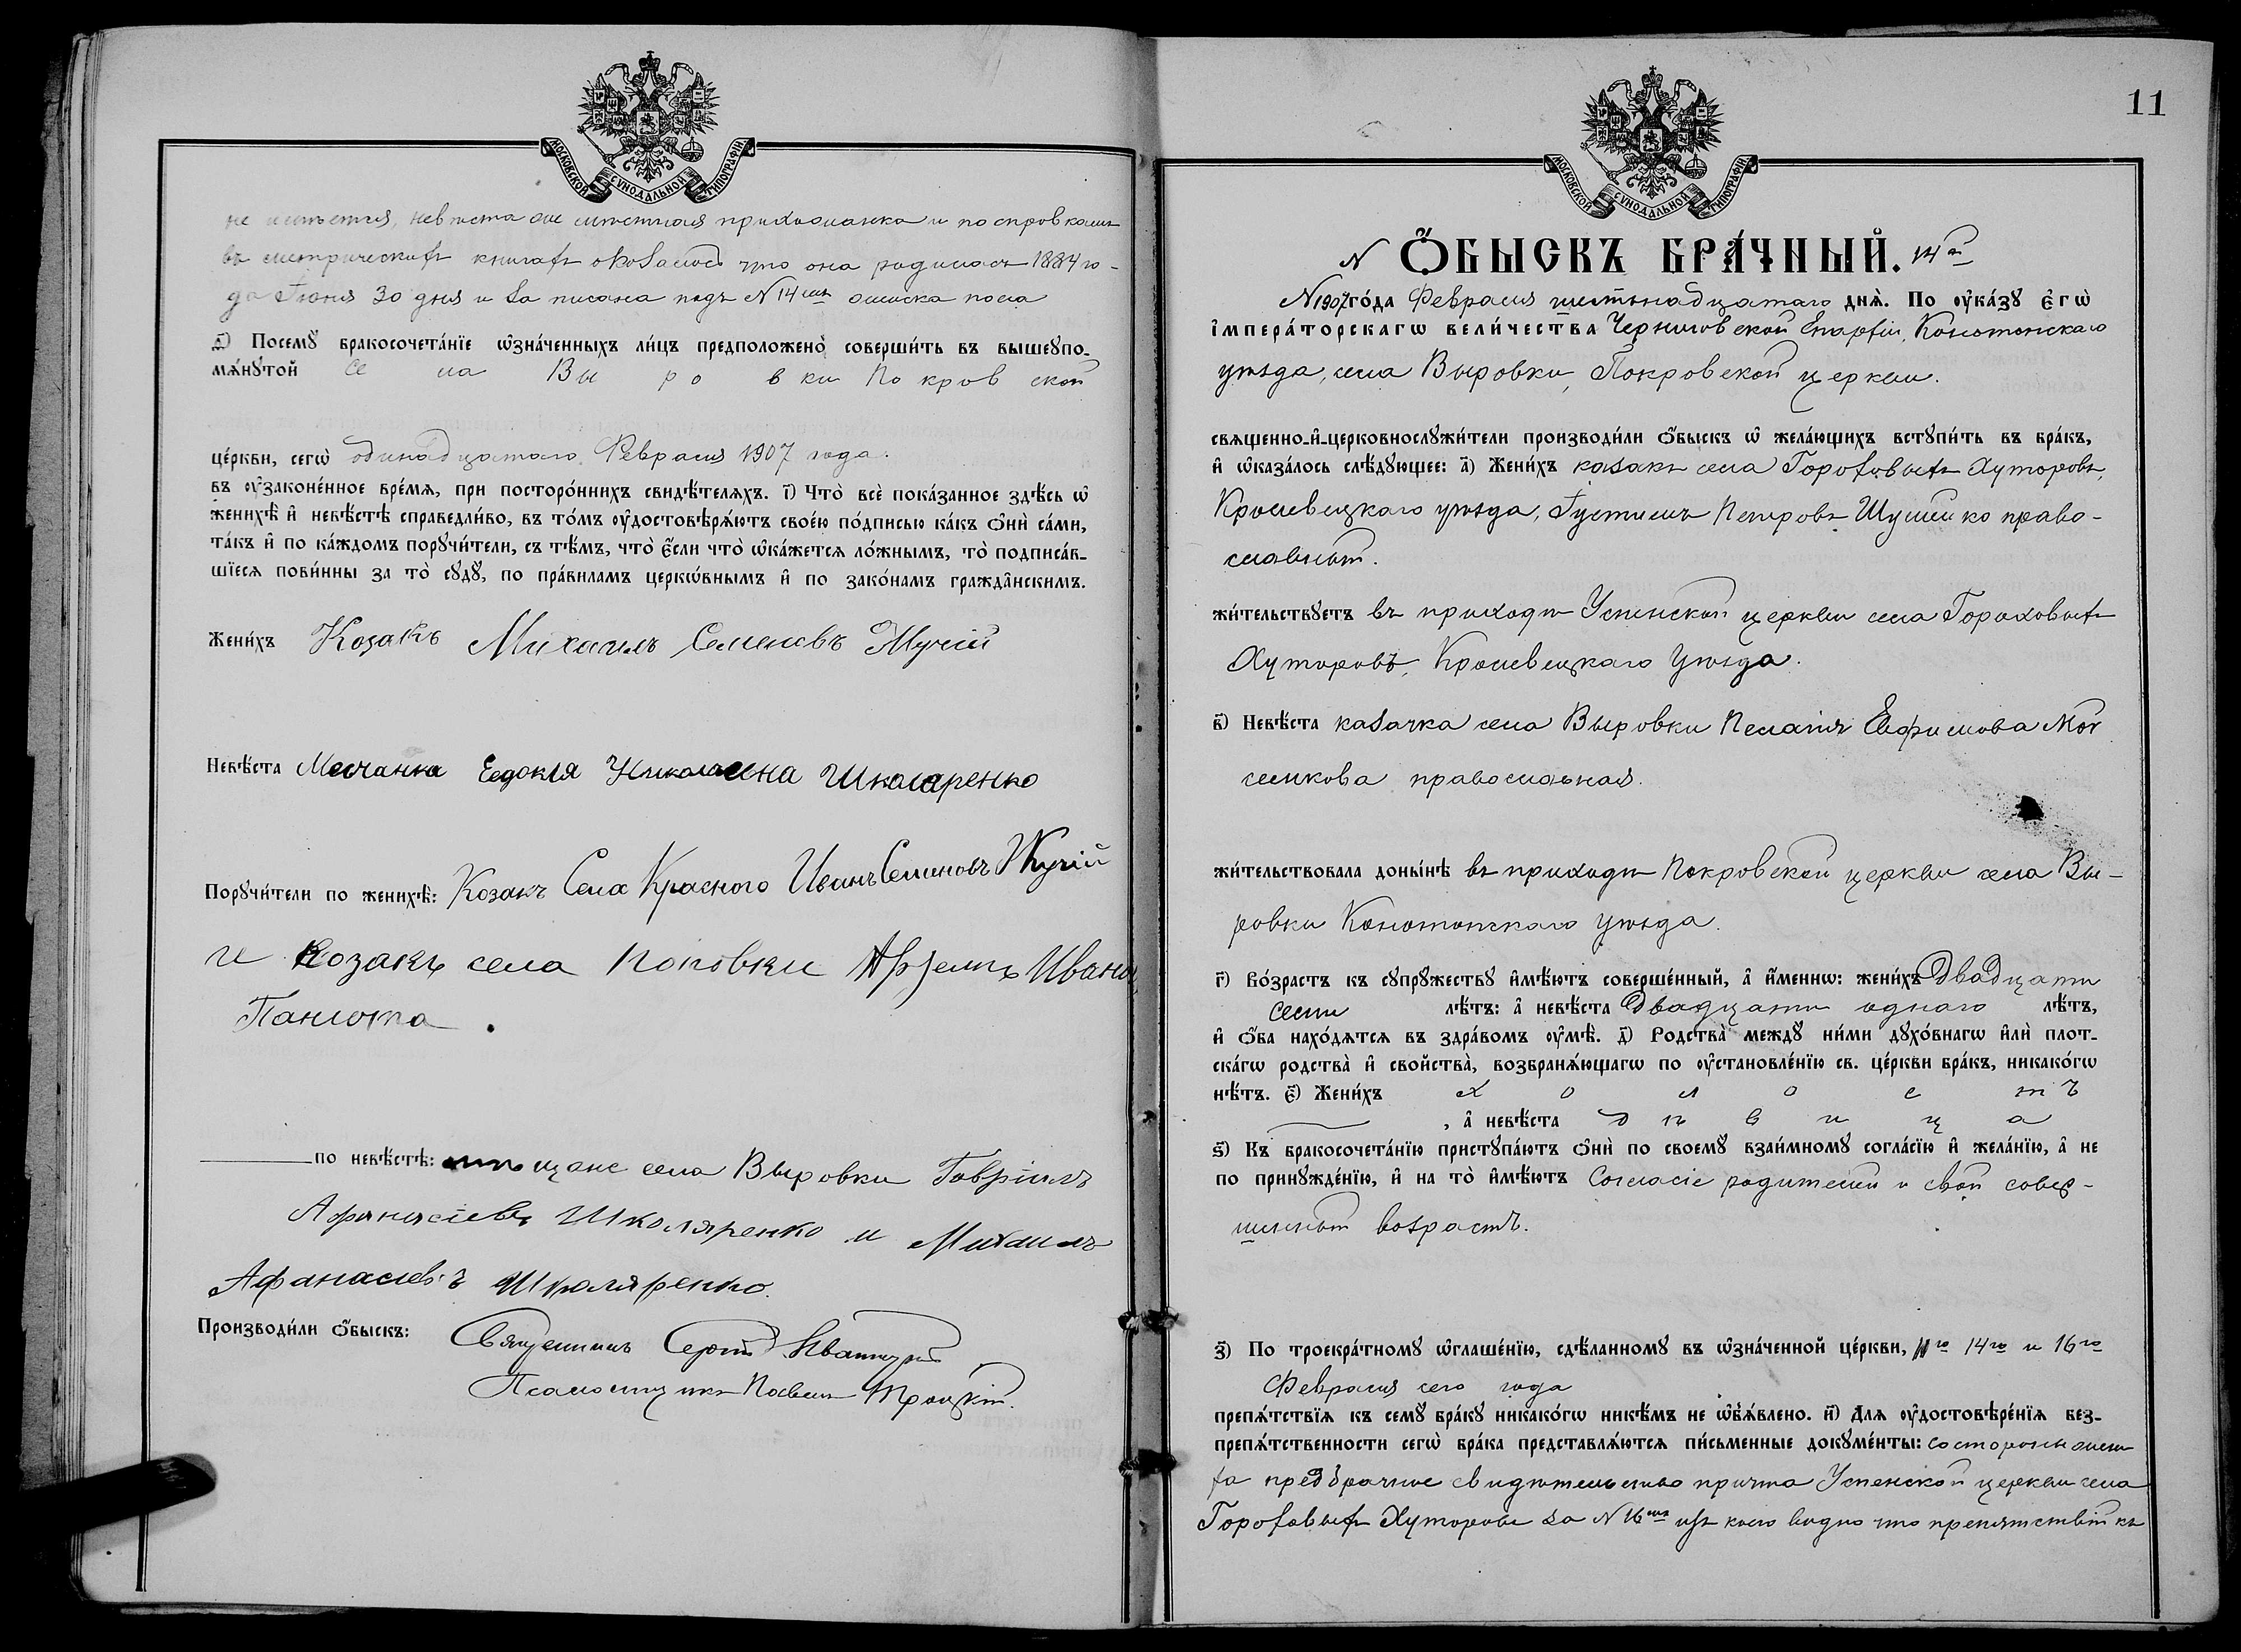 МОСКОВСКОЙ СУНОДАЛЬНОЙ ТИПОГРАФІИ
не имѣется, невѣста же мѣстная прихожанка и по справкамъ
въ метрическихъ книгахъ оказалось что она родилась 1884 го-
да Іюня 30 дня и записана подъ N 14 мъ женска пола
д҃і) Посемꙋ бракосочета́нїе ѡ҆зна́ченныхъ ли́цъ предположено̀ соверши́ть въ вышеꙋпо-
мѧ́нꙋтой Села Выровки Покровской
це́ркви, сегѡ̀ одинадцатаго Февраля 1907 года.
въ ᲂу҆законе́нное вре́мѧ, при посторо́ннихъ свидѣ́телѧхъ. і҃) Что̀ всѐ пока́занное здѣ́сь ѡ҆
женихѣ̀ и҆ невѣ́стѣ справедли́во, въ то́мъ ᲂу҆достовѣрѧ́ютъ свое́ю по́дписью ка́къ ѻ҆нѝ са́ми,
та́къ и҆ по ка́ждомъ порꙋчи́тели, съ тѣ́мъ, что̀ є҆́сли что̀ ѡ҆ка́жется ло́жнымъ, то̀ подписа́в-
шїесѧ пови́нны за то̀ сꙋдꙋ̀, по пра́виламъ церкѡ́внымъ и҆ по зако́намъ гражда̑нскимъ.
Жени́хъ Козакъ Михаилъ Семеновъ Жучій
Невѣ́ста Месчанка Евдокія Николаевна Школяренко
Порꙋчи́тели по женихѣ̀: Козакъ Села Красного Иванъ Семеновъ Жучій
и Козакъ села Поповки Иванов
Панюта.
по невѣ́стѣ: мѣщане села Выровки Гавріилъ
Афанасіевъ Школяренко и Михаилъ
Афанасіевъ Школяренко.
Производи́ли ѻ҆́быскъ: Священникъ Сергій
Псаломщикъ Павелъ Троицкій.
11
МОСКОВСКОЙ СУНОДАЛЬНОЙ ТИПОГРАФІИ
N Ѻ҆́БЫСКЪ БРА́ЧНЫЙ. 14й
1907 го́да Февраля шестьнадцатаго днѧ̀. По ᲂу҆ка́зꙋ є҆гѡ̀
і҆мпера́торскагѡ вели́чества Черниговской Епархіи, Конотопскаго
уѣзда, села Выровки, Покровской церкви.
свѧщенно-и҆-церковнослꙋжи́тели производи́ли ѻ҆́быскъ ѡ҆ жела́ющихъ встꙋпи́ть въ бра́къ,
и҆ ѡ҆каза́лось слѣ́дꙋющее: а҃) Жени́хъ казакъ села Гороховыхъ Хуторовъ,
Кролевецкаго уѣзда, Іустинъ Петровъ право-
славный.
жи́тельствꙋетъ въ приходѣ Успенской церкви села Гороховыхъ
Хуторовъ, Кролевецкаго Уѣзда.
в҃) Невѣ́ста казачка села Выровки Пелагія Евфимова
православная.
жи́тельствовала доны́нѣ въ приходѣ Покровской церкви села Вы-
ровки Конотопскаго уѣзда.
г҃) Во́зрастъ къ сꙋпрꙋ́жествꙋ и҆мѣ́ютъ соверше́нный, а҆ и҆́меннѡ: жени́хъ Двадцати
семи лѣ́тъ: а҆ невѣ́ста Двадцати одного лѣ́тъ,
и҆ ѻ҆́ба нахо́дѧтсѧ въ здра́вомъ ᲂу҆мѣ̀. д҃) Родства̀ междꙋ̀ ни́ми дꙋхо́внагѡ и҆лѝ плот-
ска́гѡ родства̀ и҆ свойства̀, возбранѧ́ющагѡ по ᲂу҆становле́нїю св. це́ркви бра́къ, никако́гѡ
нѣ́тъ. є҃) Жени́хъ холостъ
, а҆ невѣ́ста дѣвица
ѕ҃) Къ бракосочета́нїю пристꙋпа́ютъ ѻ҆нѝ по своемꙋ̀ взаи́мномꙋ согла́сїю и҆ жела́нїю, а҆ не
по принꙋжде́нїю, и҆ на то̀ и҆мѣ́ютъ Согласіе родителей и свой совер-
шенный возрастъ.
з҃) По троекра́тномꙋ ѡ҆глаше́нїю, сдѣ́ланномꙋ въ ѡ҆зна́ченной це́ркви, 11го 14го и 16го
Февраля сего года
препѧ́тствїѧ къ семꙋ̀ бра́кꙋ никако́гѡ никѣ́мъ не ѡ҆б̾ѧ́влено. и҃) Длѧ ᲂу҆достовѣре́нїѧ без-
препѧ́тственности сегѡ̀ бра́ка представлѧ́ютсѧ пи́сьменные докꙋме́нты: со стороны жени-
ха предбрачное свидѣтельство причта Успенской церкви села
Гороховыхъ Хуторовъ за N 16мъ изъ коего видно что препятствій къ